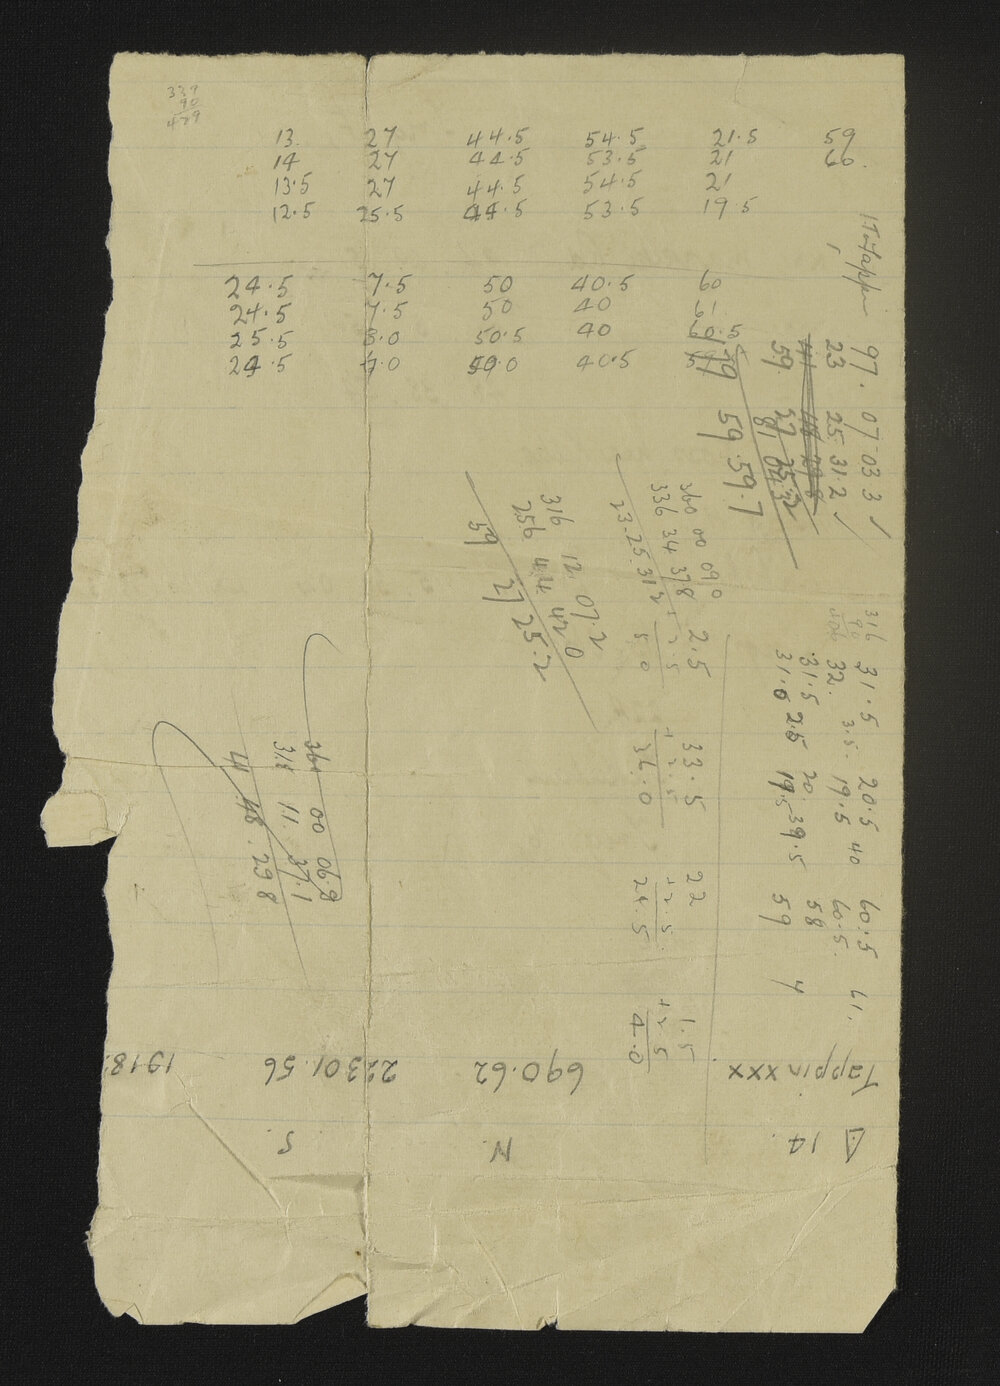 339
90
429
13. 27 44.5 54.5 21.5 59
14 27 44.5 53.5 21 60.
13.5 27 44.5 54.5 21
12.5 25.5 44.5 53.5 19.5
24.5 7.5 50 40.5 60
24.5 7.5 50 40 61
25.5 8.0 50.5 40 60.5
24.5 7.0 50.0 40.5
97. 07 03 3 ✓
23 25 31.2 ✓
59.
59 59.7
316
90
31.5 20.5 40 60.5 61.
32. 3.5. 19.5 60.5.
31.5 20. 39.5 58
31.0 2.5 19.5 59 4
360 00 09.0
336 34 37.8
23.25.31.2
2.5
+ 2.5
5.0
33.5
+ 2.5
36.0
22
+2.5
24.5
1.5
+2.5
4.0
316 12. 07.2
256 44 42.0
59 27 25.2
360 00 06.9
318 11. 37.1
41 48. 29 8
Δ 14. N. S.
Tappin xxx 690.62 22301.56 1918.